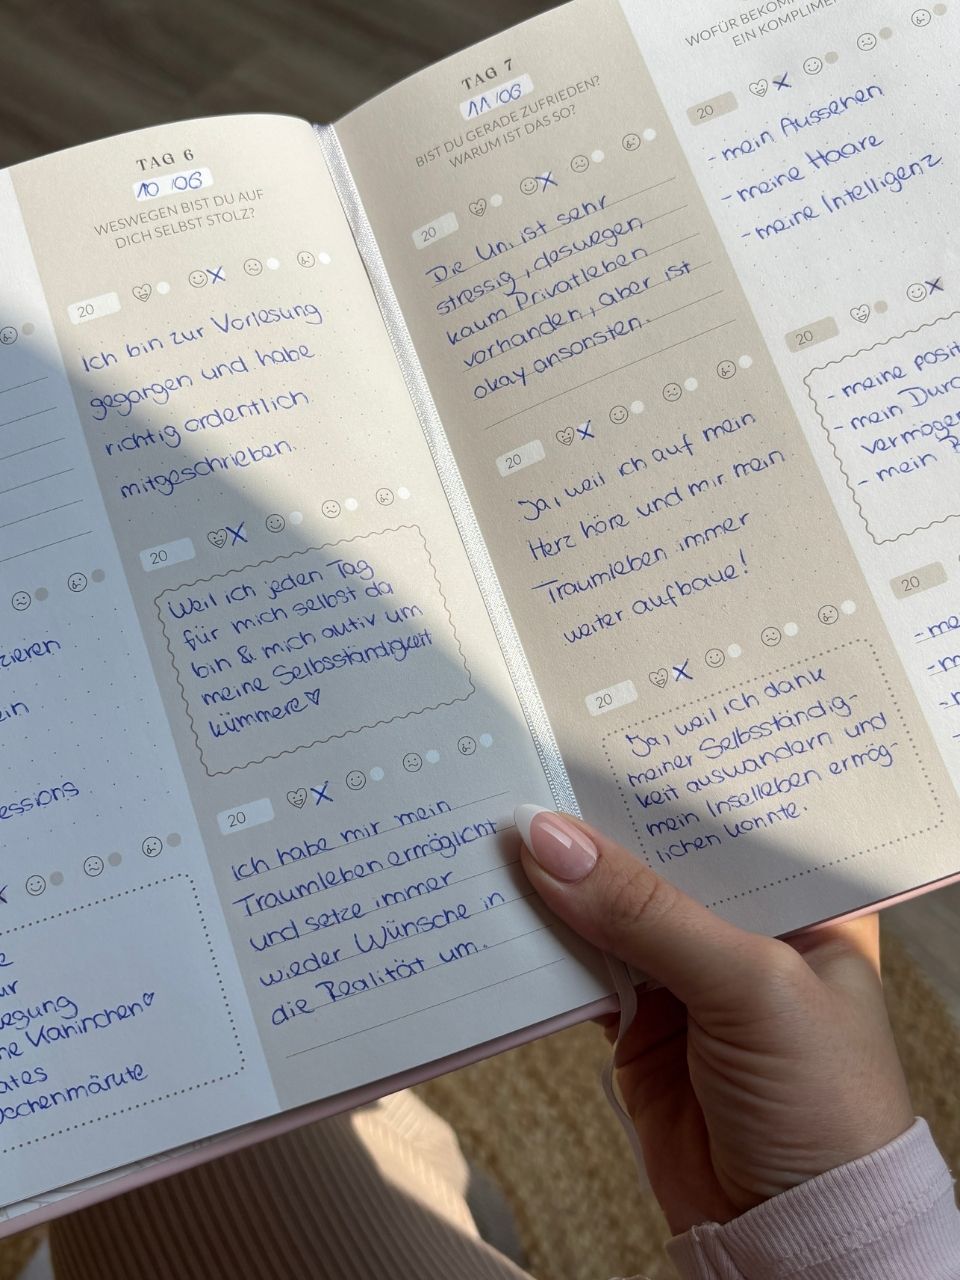 zieren
ein
essions
ur
egung
ne Kaninchen♡
ates
ochenmärkte
TAG 6
10 06
WESWEGEN BIST DU AUF
DICH SELBST STOLZ?
20
Ich bin zur Vorlesung
gegangen und habe
richtig ordentlich
mitgeschrieben.
20
Weil ich jeden Tag
für mich selbst da
bin & mich aktiv um
meine Selbsständigkeit
kümmere♡
20
Ich habe mir mein
Traumleben ermöglicht
und setze immer
wieder Wünsche in
die Realität um.
TAG 7
11 06
BIST DU GERADE ZUFRIEDEN?
WARUM IST DAS SO?
20
Die Uni ist sehr
stressig, deswegen
kaum Privatleben
vorhanden, aber ist
okay ansonsten.
20
Ja, weil ich auf mein
Herz höre und mir mein
Traumleben immer
weiter aufbaue!
20
Ja, weil ich dank
meiner Selbsständig-
keit auswandern und
mein Inselleben ermög-
lichen konnte.
WOFÜR BEKOM
EIN KOMPLIME
20
- mein Aussehen
- meine Haare
- meine Intelligenz
20
- meine posit
- mein Durc
vermöge
- mein
20
- me
- m